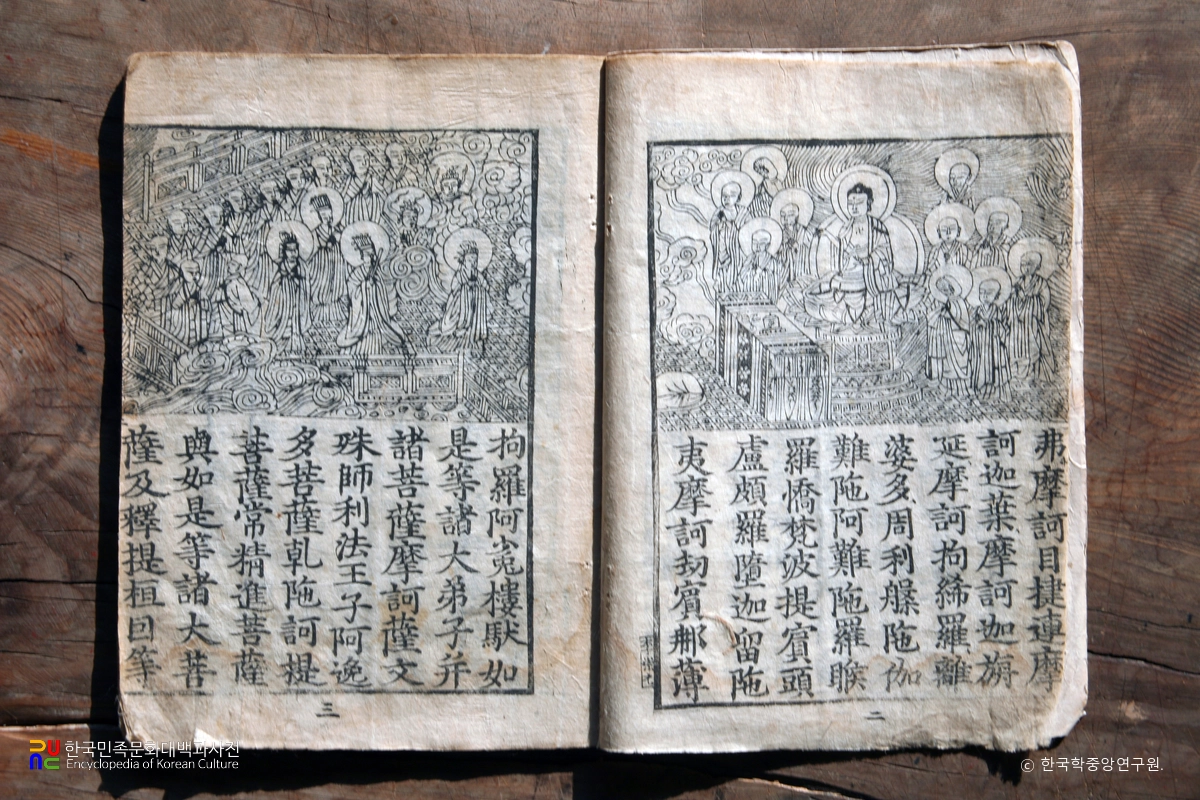 弗摩訶目揵連摩
訶迦葉摩訶迦旃
延摩訶拘絺羅離
婆多周利槃陁伽
難陁阿難陁羅睺
羅憍梵波提賓頭
盧頗羅墮迦留陁
夷摩訶劫賓那薄
二
拘羅阿㝹樓馱如
是等諸大弟子并
諸菩薩摩訶薩文
殊師利法王子阿逸
多菩薩乹陁訶提
菩薩常精進菩薩
與如是等諸大菩
薩及釋提桓因等
三
한국민족문화대백과사전
Encyclopedia of Korean Culture
ⓒ 한국학중앙연구원.